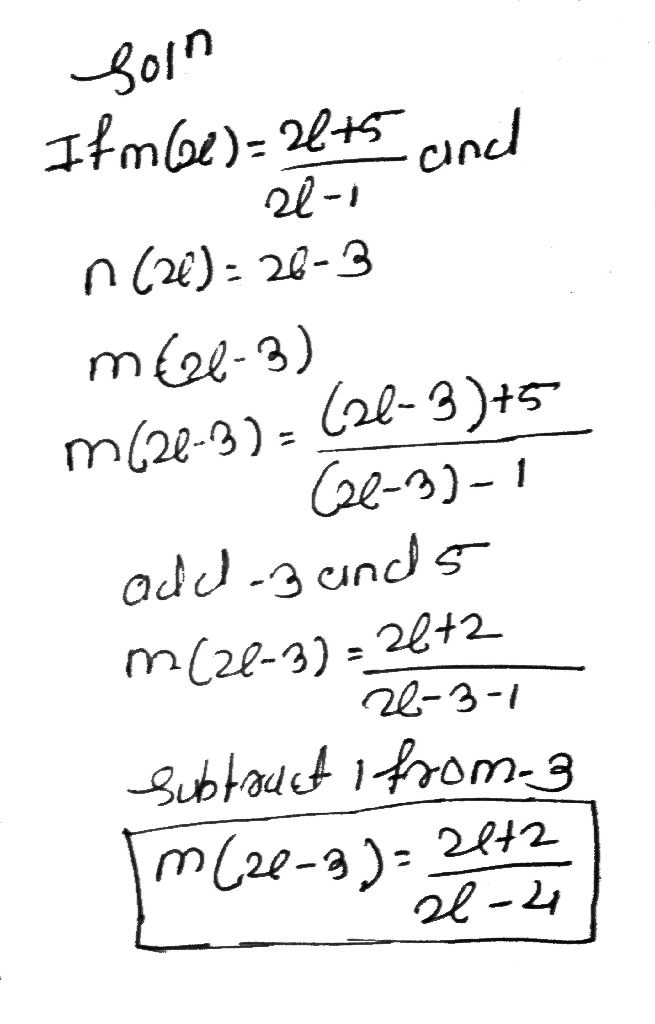 Soln
If m(x) = x+5 / x-1 and
n(x) = x-3
m(x-3)
m(x-3) = (x-3)+5 / (x-3)-1
add -3 and 5
m(x-3) = x+2 / x-3-1
Subtract 1 from -3
m(x-3) = x+2 / x-4